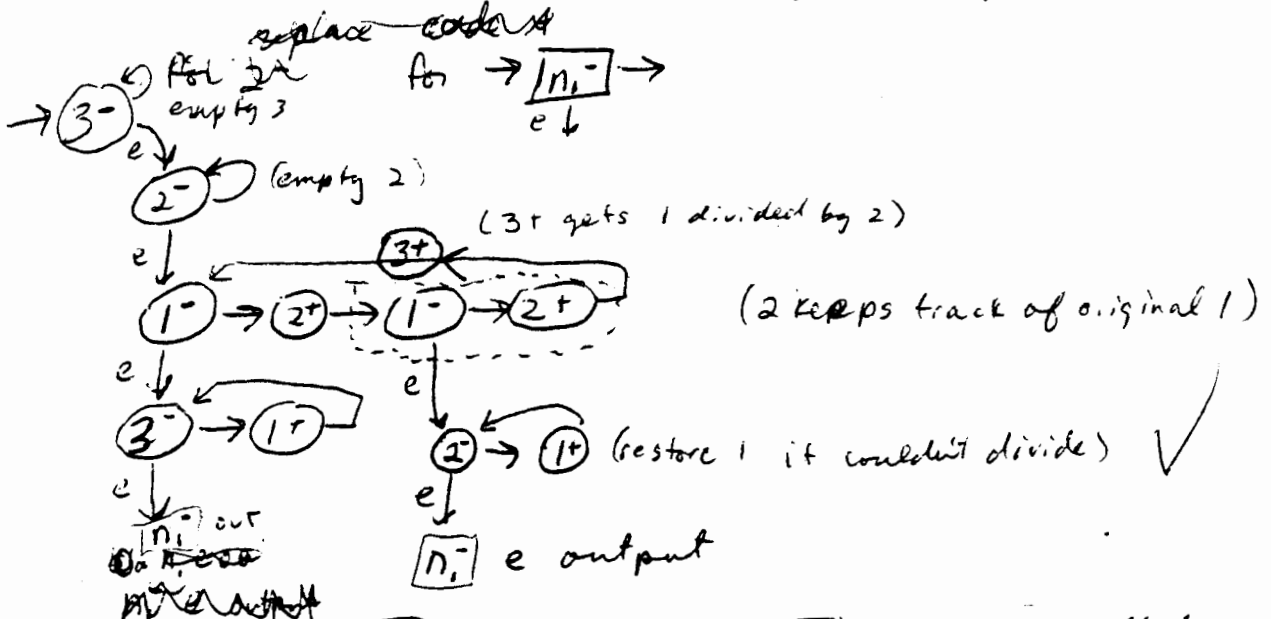 replace
for → n₁⁻ →
3⁻ empty 3
e
e
2⁻ (empty 2)
(3+ gets 1 divided by 2)
e 3+
1⁻ → 2+ → 1⁻ → 2+ (2 keeps track of original 1)
e e
3⁻ → 1+
2⁻ → 1+ (restore 1 if couldn't divide)
e e
n₁⁻ out
n₁⁻ e output